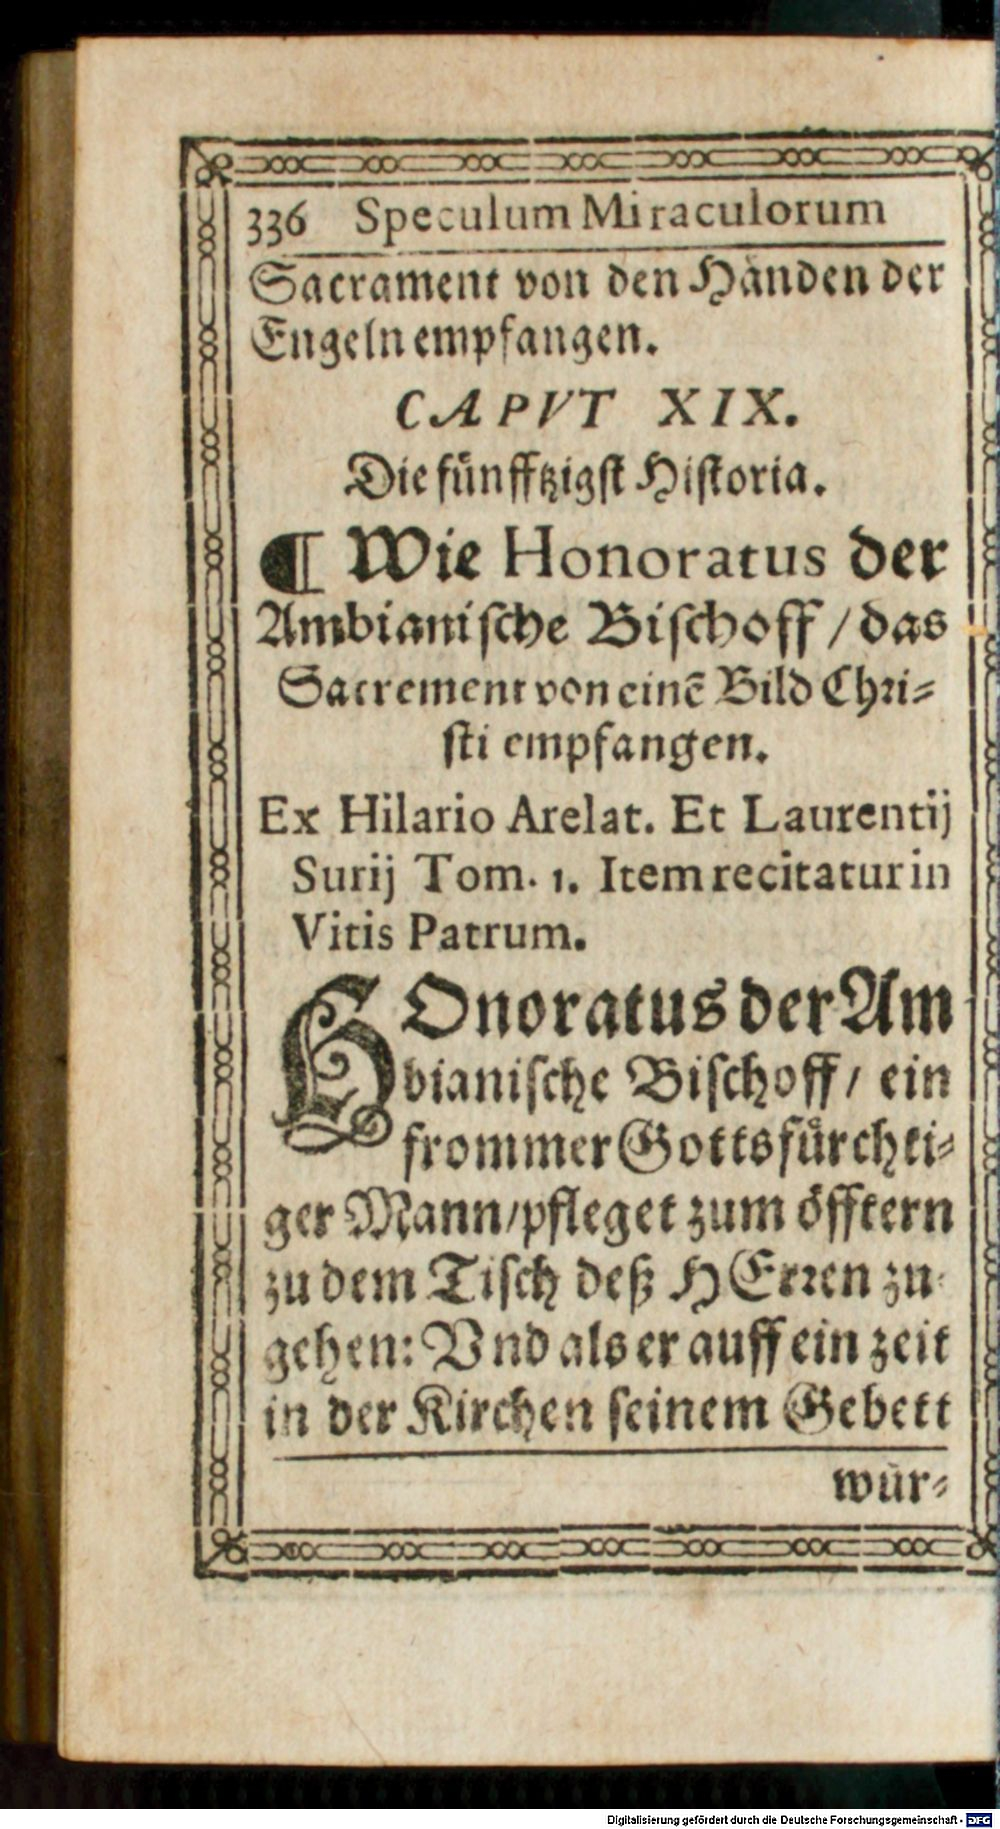 336 Speculum Miraculorum
Sacrament von den Händen der
Engeln empfangen.
CAPVT XIX.
Die fünfftzigst Historia.
¶ Wie Honoratus der
Ambianische Bischoff / das
Sacrement von einē Bild Chri⸗
sti empfangen.
Ex Hilario Arelat. Et Laurentij
Surij Tom. 1. Item recitatur in
Vitis Patrum.
HOnoratus der Am
bianische Bischoff / ein
frommer Gottsfürchti⸗
ger Mann / pfleget zum öfftern
zu dem Tisch deß HErren zu
gehen: Vnd als er auff ein zeit
in der Kirchen seinem Gebett
wür⸗
Digitalisierung gefördert durch die Deutsche Forschungsgemeinschaft - DFG